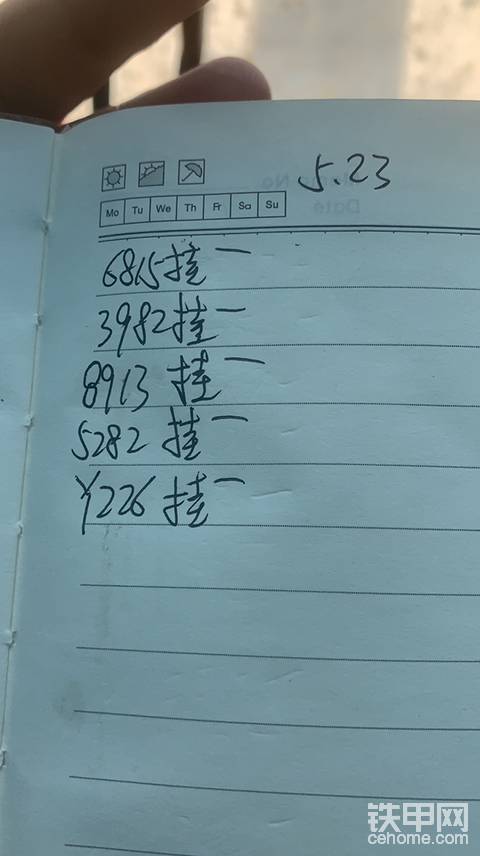 5.23
Mo Tu We Th Fr Sa Su
6815挂一
3982挂一
8913 挂一
5282 挂一
Y226 挂一
铁甲网
cehome.com